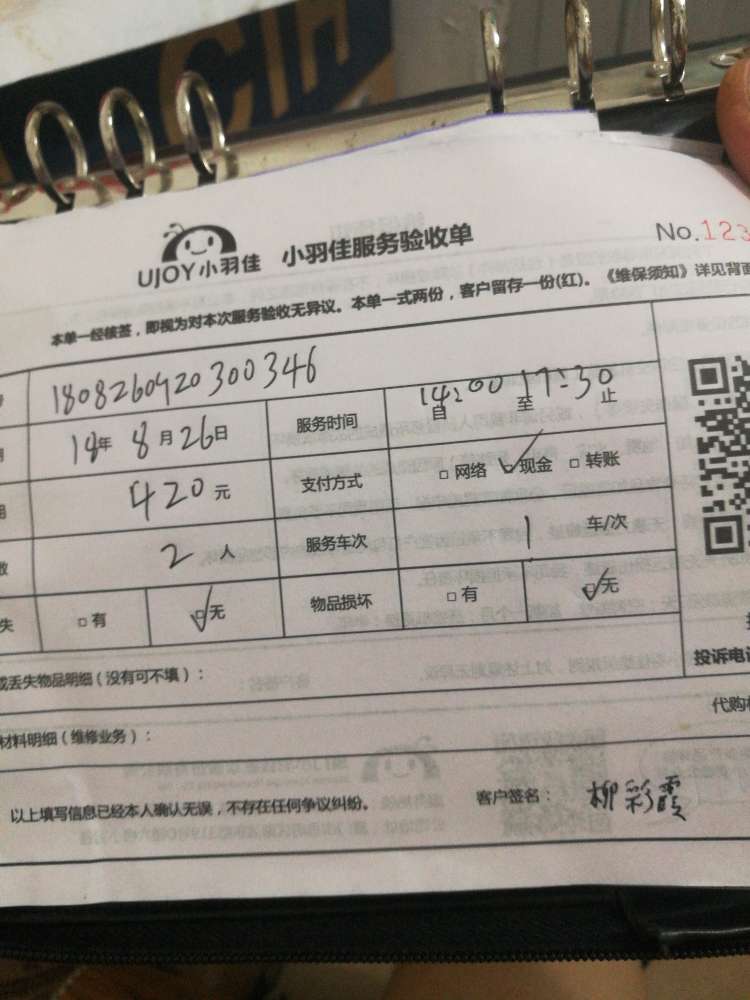 UJOY小羽佳 小羽佳服务验收单 No.123
本单一经核签，即视为对本次服务验收无异议。本单一式两份，客户留存一份(红)。《维保须知》详见背面
180826092030 0346
18年 8月26日 服务时间 14:00 自 至 17:30 止
420元 支付方式 □网络 ☑现金 □转账
2人 服务车次 1 车/次
失 □有 ☑无 物品损坏 □有 ☑无
或丢失物品明细（没有可不填）：
投诉电话
代购
材料明细（维修业务）：
以上填写信息已经本人确认无误，不存在任何争议纠纷。 客户签名： 柳彩霞